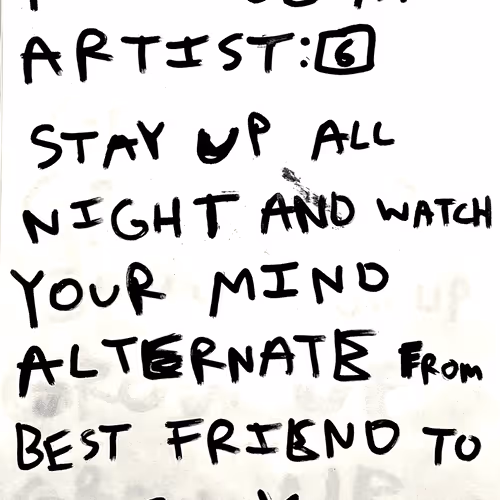 ARTIST: 6
STAY UP ALL
NIGHT AND WATCH
YOUR MIND
ALTERNATE FROM
BEST FRIEND TO